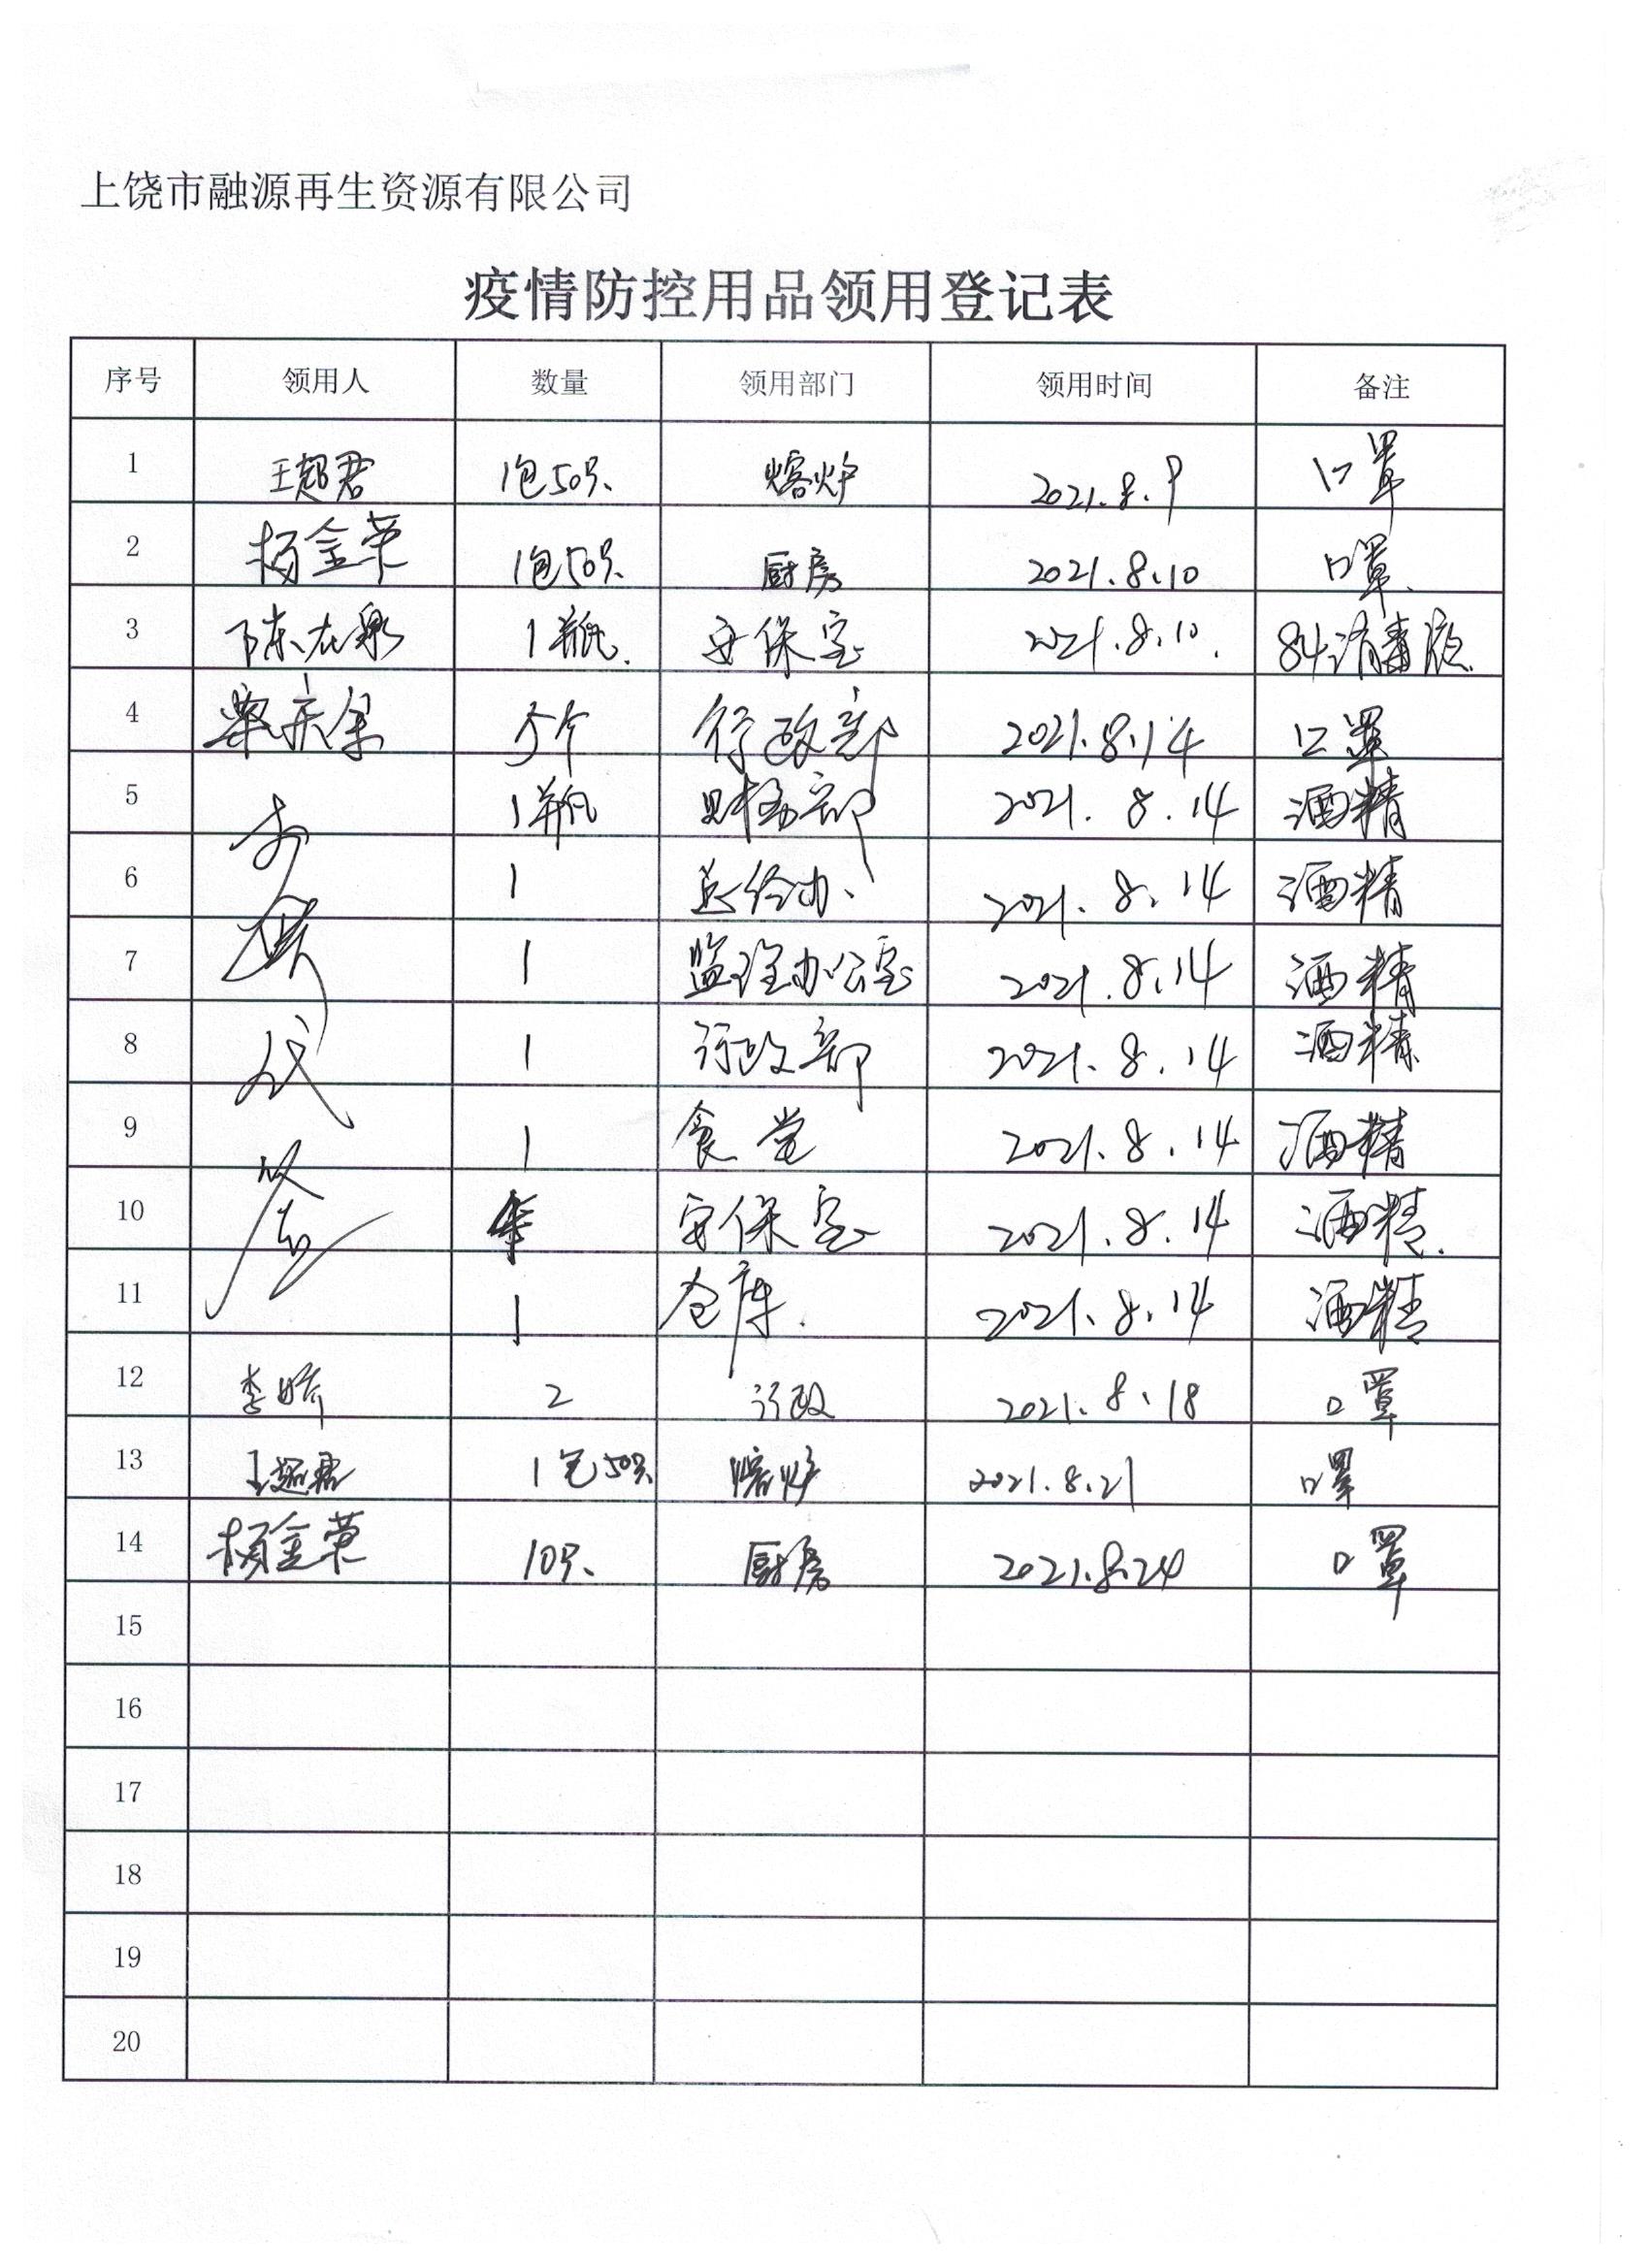 上饶市融源再生资源有限公司
疫情防控用品领用登记表
序号 领用人 数量 领用部门 领用时间 备注
1 王超君 1包50只、 熔炉 2021.8.9 口罩
2 杨金荣 1包50只、 厨房 2021.8.10 口罩.
3 陈在泉 1瓶. 安保室 2021.8.10. 84消毒液.
4 5个 行政部 2021.8.14 口罩
5 1瓶 财务部 2021.8.14 酒精
6 1 总经办、 2021.8.14 酒精
7 1 监理办公室 2021.8.14 酒精
8 1 行政部 2021.8.14 酒精
9 1 食堂 2021.8.14 酒精
10 安保室 2021.8.14 酒精.
11 1 仓库. 2021.8.14 酒精
12 李娇 2 行政 2021.8.18 口罩
13 王超君 1包50只. 熔炉 2021.8.21 口罩
14 杨金荣 10只、 厨房 2021.8.24 口罩
15
16
17
18
19
20